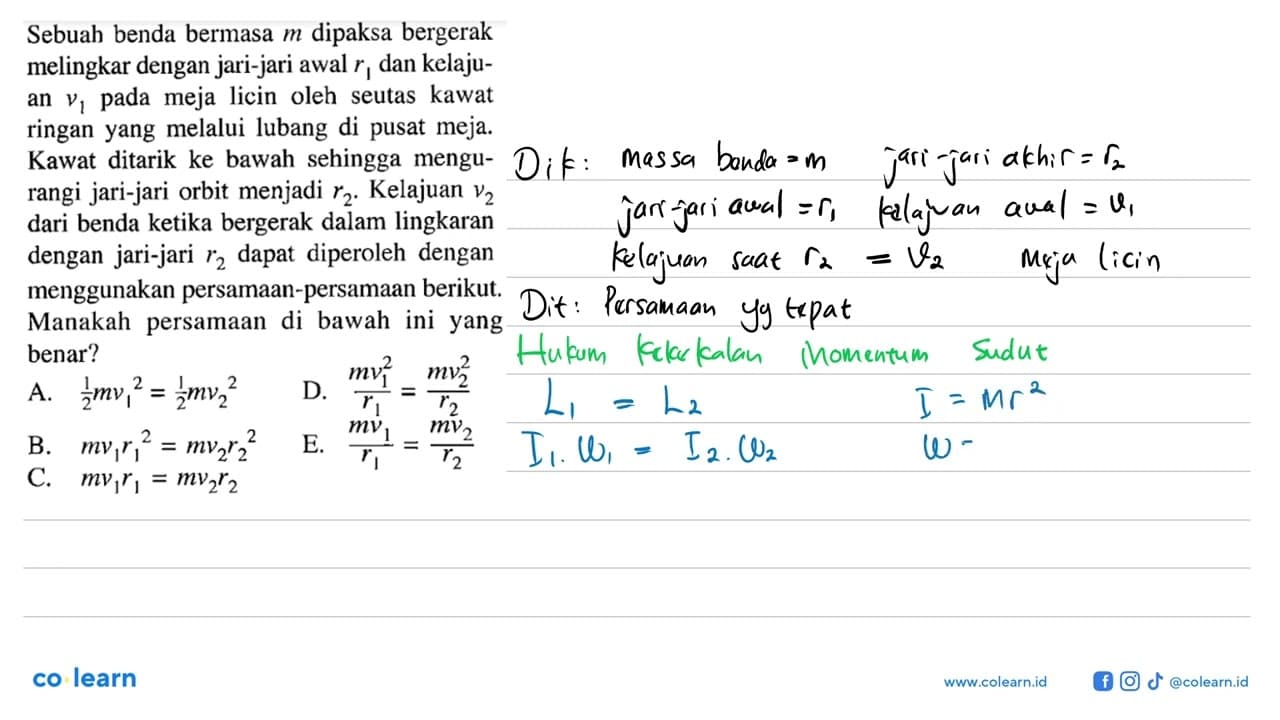 Sebuah benda bermasa m dipaksa bergerak
melingkar dengan jari-jari awal r₁ dan kelaju-
an v₁ pada meja licin oleh seutas kawat
ringan yang melalui lubang di pusat meja.
Kawat ditarik ke bawah sehingga mengu-
rangi jari-jari orbit menjadi r₂. Kelajuan v₂
dari benda ketika bergerak dalam lingkaran
dengan jari-jari r₂ dapat diperoleh dengan
menggunakan persamaan-persamaan berikut.
Manakah persamaan di bawah ini yang
benar?
A. ½mv₁² = ½mv₂²
B. mv₁r₁² = mv₂r₂²
C. mv₁r₁ = mv₂r₂
D. mv₁²/r₁ = mv₂²/r₂
E. mv₁/r₁ = mv₂/r₂
Dik: massa benda = m jari-jari akhir = r₂
jari-jari awal = r₁ kelajuan awal = v₁
kelajuan saat r₂ = v₂ Meja licin
Dit: Persamaan yg tepat
Hukum Kekekalan Momentum Sudut
L₁ = L₂ I = mr²
I₁.ω₁ = I₂.ω₂ ω =
co learn
www.colearn.id @colearn.id